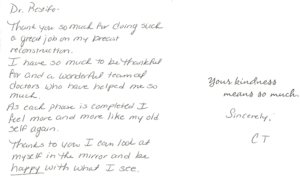 Dr. Restifo-
Thank you so much for doing such
a great job on my breast
reconstruction.
I have so much to be thankful
for and a wonderful team of
doctors who have helped me so
much.
As each phase is completed I
feel more and more like my old
self again.
Thanks to you I can look at
myself in the mirror and be
happy with what I see.
Your kindness
means so much.
Sincerely,
CT